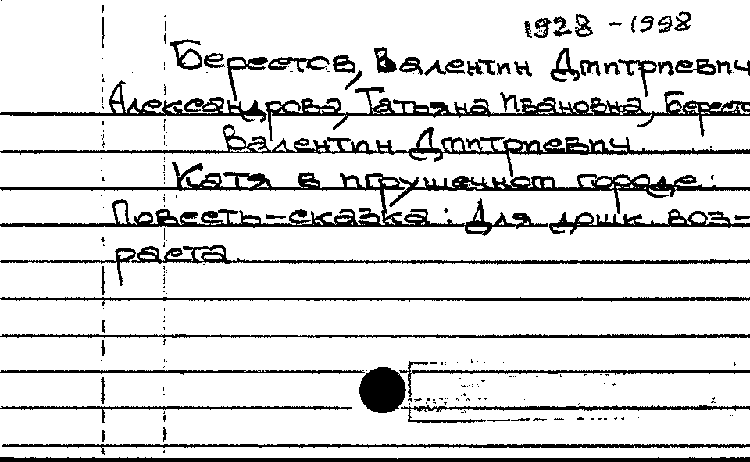 1928-1998
Берестов, Валентин Дмитриевич
Александрова, Татьяна Ивановна, Бересто
Валентин Дмитриевич.
Катя в игрушечном городе:
Повесть-сказка: Для дошк. воз-
раста